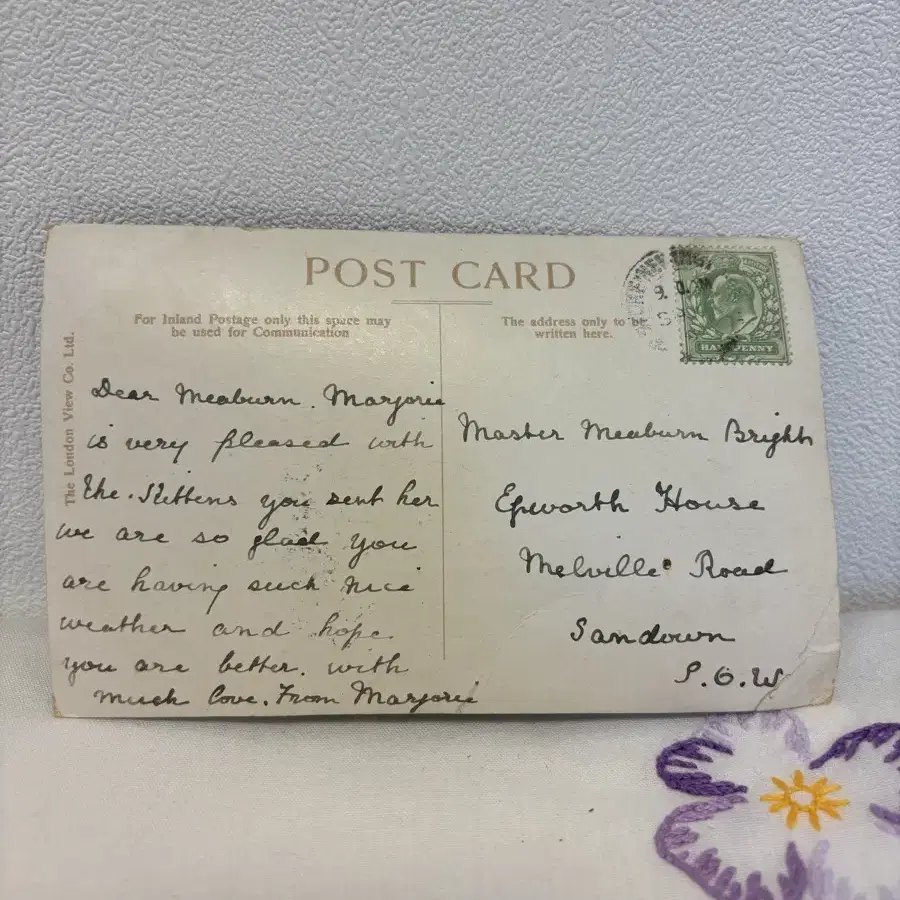 POST CARD
For Inland Postage only this space may
be used for Communication
The address only to be
written here.
HALFPENNY
The London View Co. Ltd.
Dear Meaburn. Marjorie
is very pleased with
the. Kittens you sent her
we are so glad you
are having such nice
weather and hope.
you are better. with
much love. From Marjorie
Master Meaburn Bright
Epworth House
Melville Road
Sandown
I.O.W